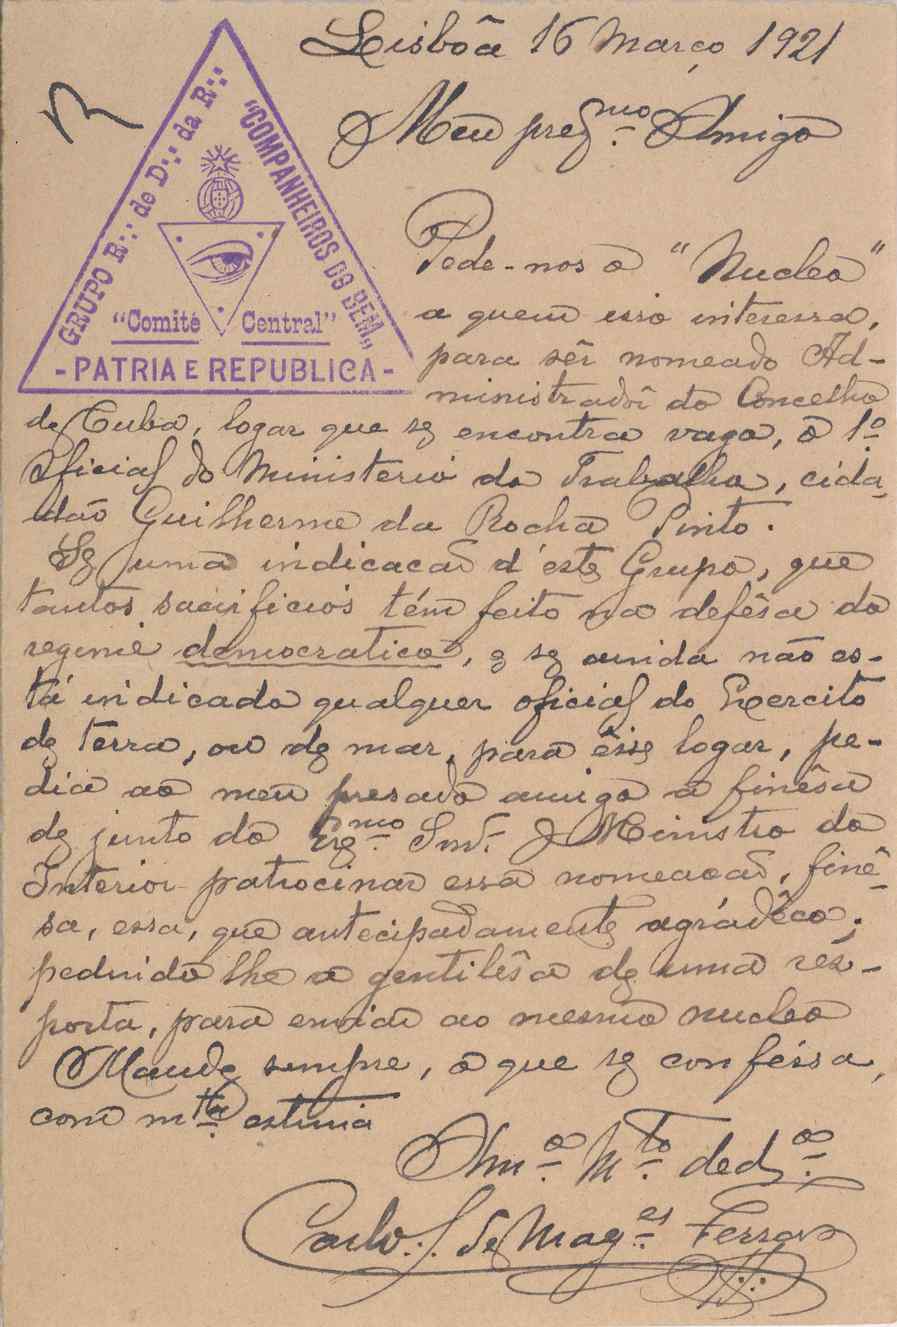 Lisbôa 16 Março 1921
GRUPO R∴ de D∴ da R∴
"COMPANHEIROS DO BEM"
"Comité Central"
- PATRIA E REPUBLICA -
Meu presmo Amigo
Pede-nos o "Nucleo"
a quem isso interessa,
para sêr nomeado Ad-
ministradôr do Concelho
de Cuba, logar que se encontra vago, o 1º
oficial do Ministerio do Trabalho, cida-
dão Guilherme da Rocha Pinto.
Se uma indicacão d'este Grupo, que
tantos sacrificios têm feito na defêsa do
regimê democratico, e se ainda não es-
tá indicado qualquer oficial do Exercito
de terra, ou de mar, para êsse logar, pe-
dia ao meu presado amigo a finêsa
de junto do Exmo Snr. Ministro do
Interior patrocinar essa nomeacão, finê-
sa, essa, que antecipadamente agradêco;
pedindo lhe a gentilêsa de uma res-
posta, para enviar ao mesmo nucleo
Mande sempre, o que se confessa,
com mta estima
Amo Mto dedo
Carlos S. de Mages Ferraz